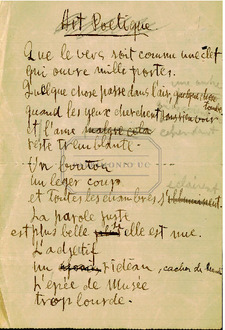 Art Poétique
Que le vers soit comme une clef
qui ouvre mille portes.
Quelque chose passe dans l'air, quelque chose
tombe
quand les yeux cherchent sans rien voir
et l'âme malgré cela
reste tremblante.
Un bouton
un léger coup
et toutes les chambres s'illuminent.
La parole juste
est plus belle elle est nue.
L'adjectif
un rideau,
L'épée de Musée
trop lourde.